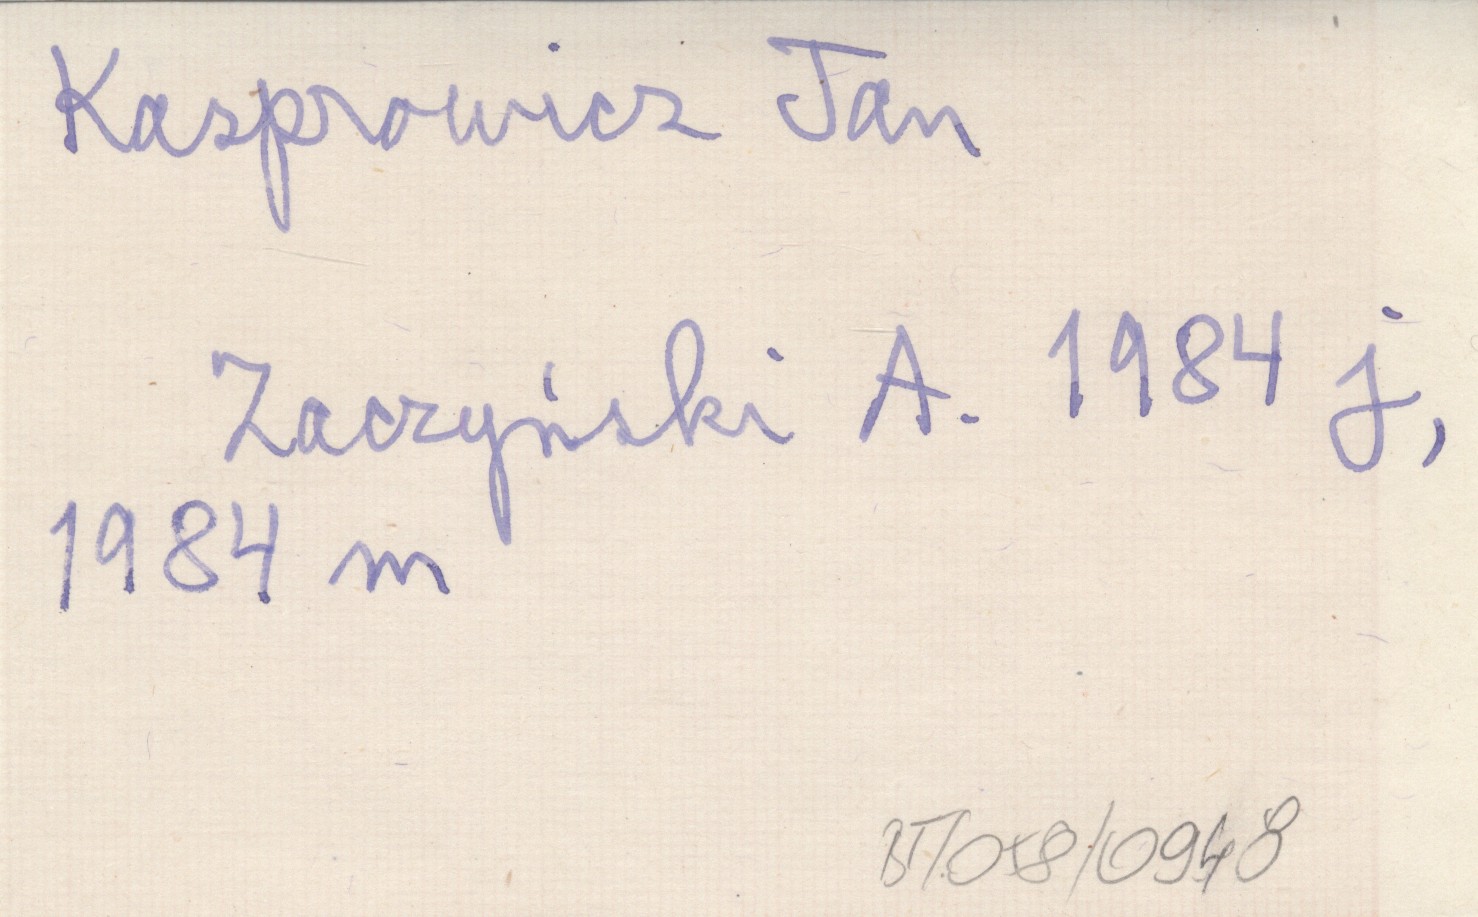 Kasprowicz Jan
Zaczyński A. 1984 j,
1984 m
BT/058/0948